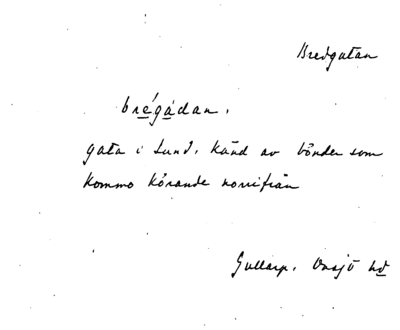 Bredgatan
brégádan.
gata i Lund, känd av bönder som
kommo körande norrifrån
Gullarp. Onsjö hd